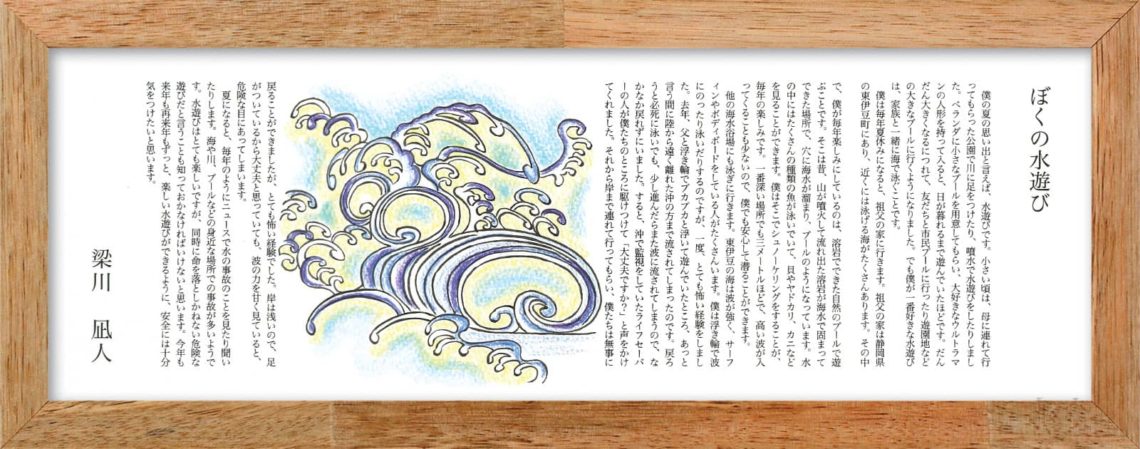 ぼくの水遊び
僕の夏の思い出と言えば、水遊びです。小さい頃は、母に連れて行
ってもらった公園で川に足をつけたり、噴水で水遊びをしたりしまし
た。ベランダに小さなプールを用意してもらい、大好きなウルトラマ
ンの人形を持って入ると、日が暮れるまで遊んでいたほどです。だん
だん大きくなるにつれて、友だちと市民プールに行ったり遊園地など
の大きなプールに行くようになりました。でも僕が一番好きな水遊び
は、家族と一緒に海で泳ぐことです。
僕は毎年夏休みになると、祖父の家に行きます。祖父の家は静岡県
の東伊豆町にあり、近くには泳げる海がたくさんあります。その中
で、僕が毎年楽しみにしているのは、溶岩でできた自然のプールで遊
ぶことです。そこは昔、山が噴火して流れ出た溶岩が海水で固まって
できた場所で、穴に海水が溜まり、プールのようになっています。水
の中にはたくさんの種類の魚が泳いでいて、貝やヤドカリ、カニなど
を見ることができます。僕はそこでシュノーケリングをすることが、
毎年の楽しみです。一番深い場所でも三メートルほどで、高い波が入
ってくることも少ないので、僕でも安心して潜ることができます。
他の海水浴場にも泳ぎに行きます。東伊豆の海は波が強く、サーフ
ィンやボディボードをしている人がたくさんいます。僕は浮き輪で波
にのったり泳いだりするのですが、一度、とても怖い経験をしまし
た。去年、父と浮き輪でプカプカと浮いて遊んでいたところ、あっと
言う間に陸から遠く離れた沖の方まで流されてしまったのです。戻ろ
うと必死に泳いでも、少し進んだらまた波に流されてしまうので、な
かなか戻れずにいました。すると、沖で監視をしていたライフセーバ
ーの人が僕たちのところに駆けつけて「大丈夫ですか？」と声をかけ
てくれました。それから岸まで連れて行ってもらい、僕たちは無事に
戻ることができましたが、とても怖い経験でした。岸は浅いので、足
がついているから大丈夫と思っていても、波の力を甘く見ていると、
危険な目にあってしまいます。
夏になると、毎年のようにニュースで水の事故のことを見たり聞い
たりします。海や川、プールなどの身近な場所での事故が多いようで
す。水遊びはとても楽しいですが、同時に命を落としかねない危険な
遊びだと言うことも知っておかなければいけないと思います。今年も
来年も再来年もずっと、楽しい水遊びができるように、安全には十分
気をつけたいと思います。
梁川　凪人